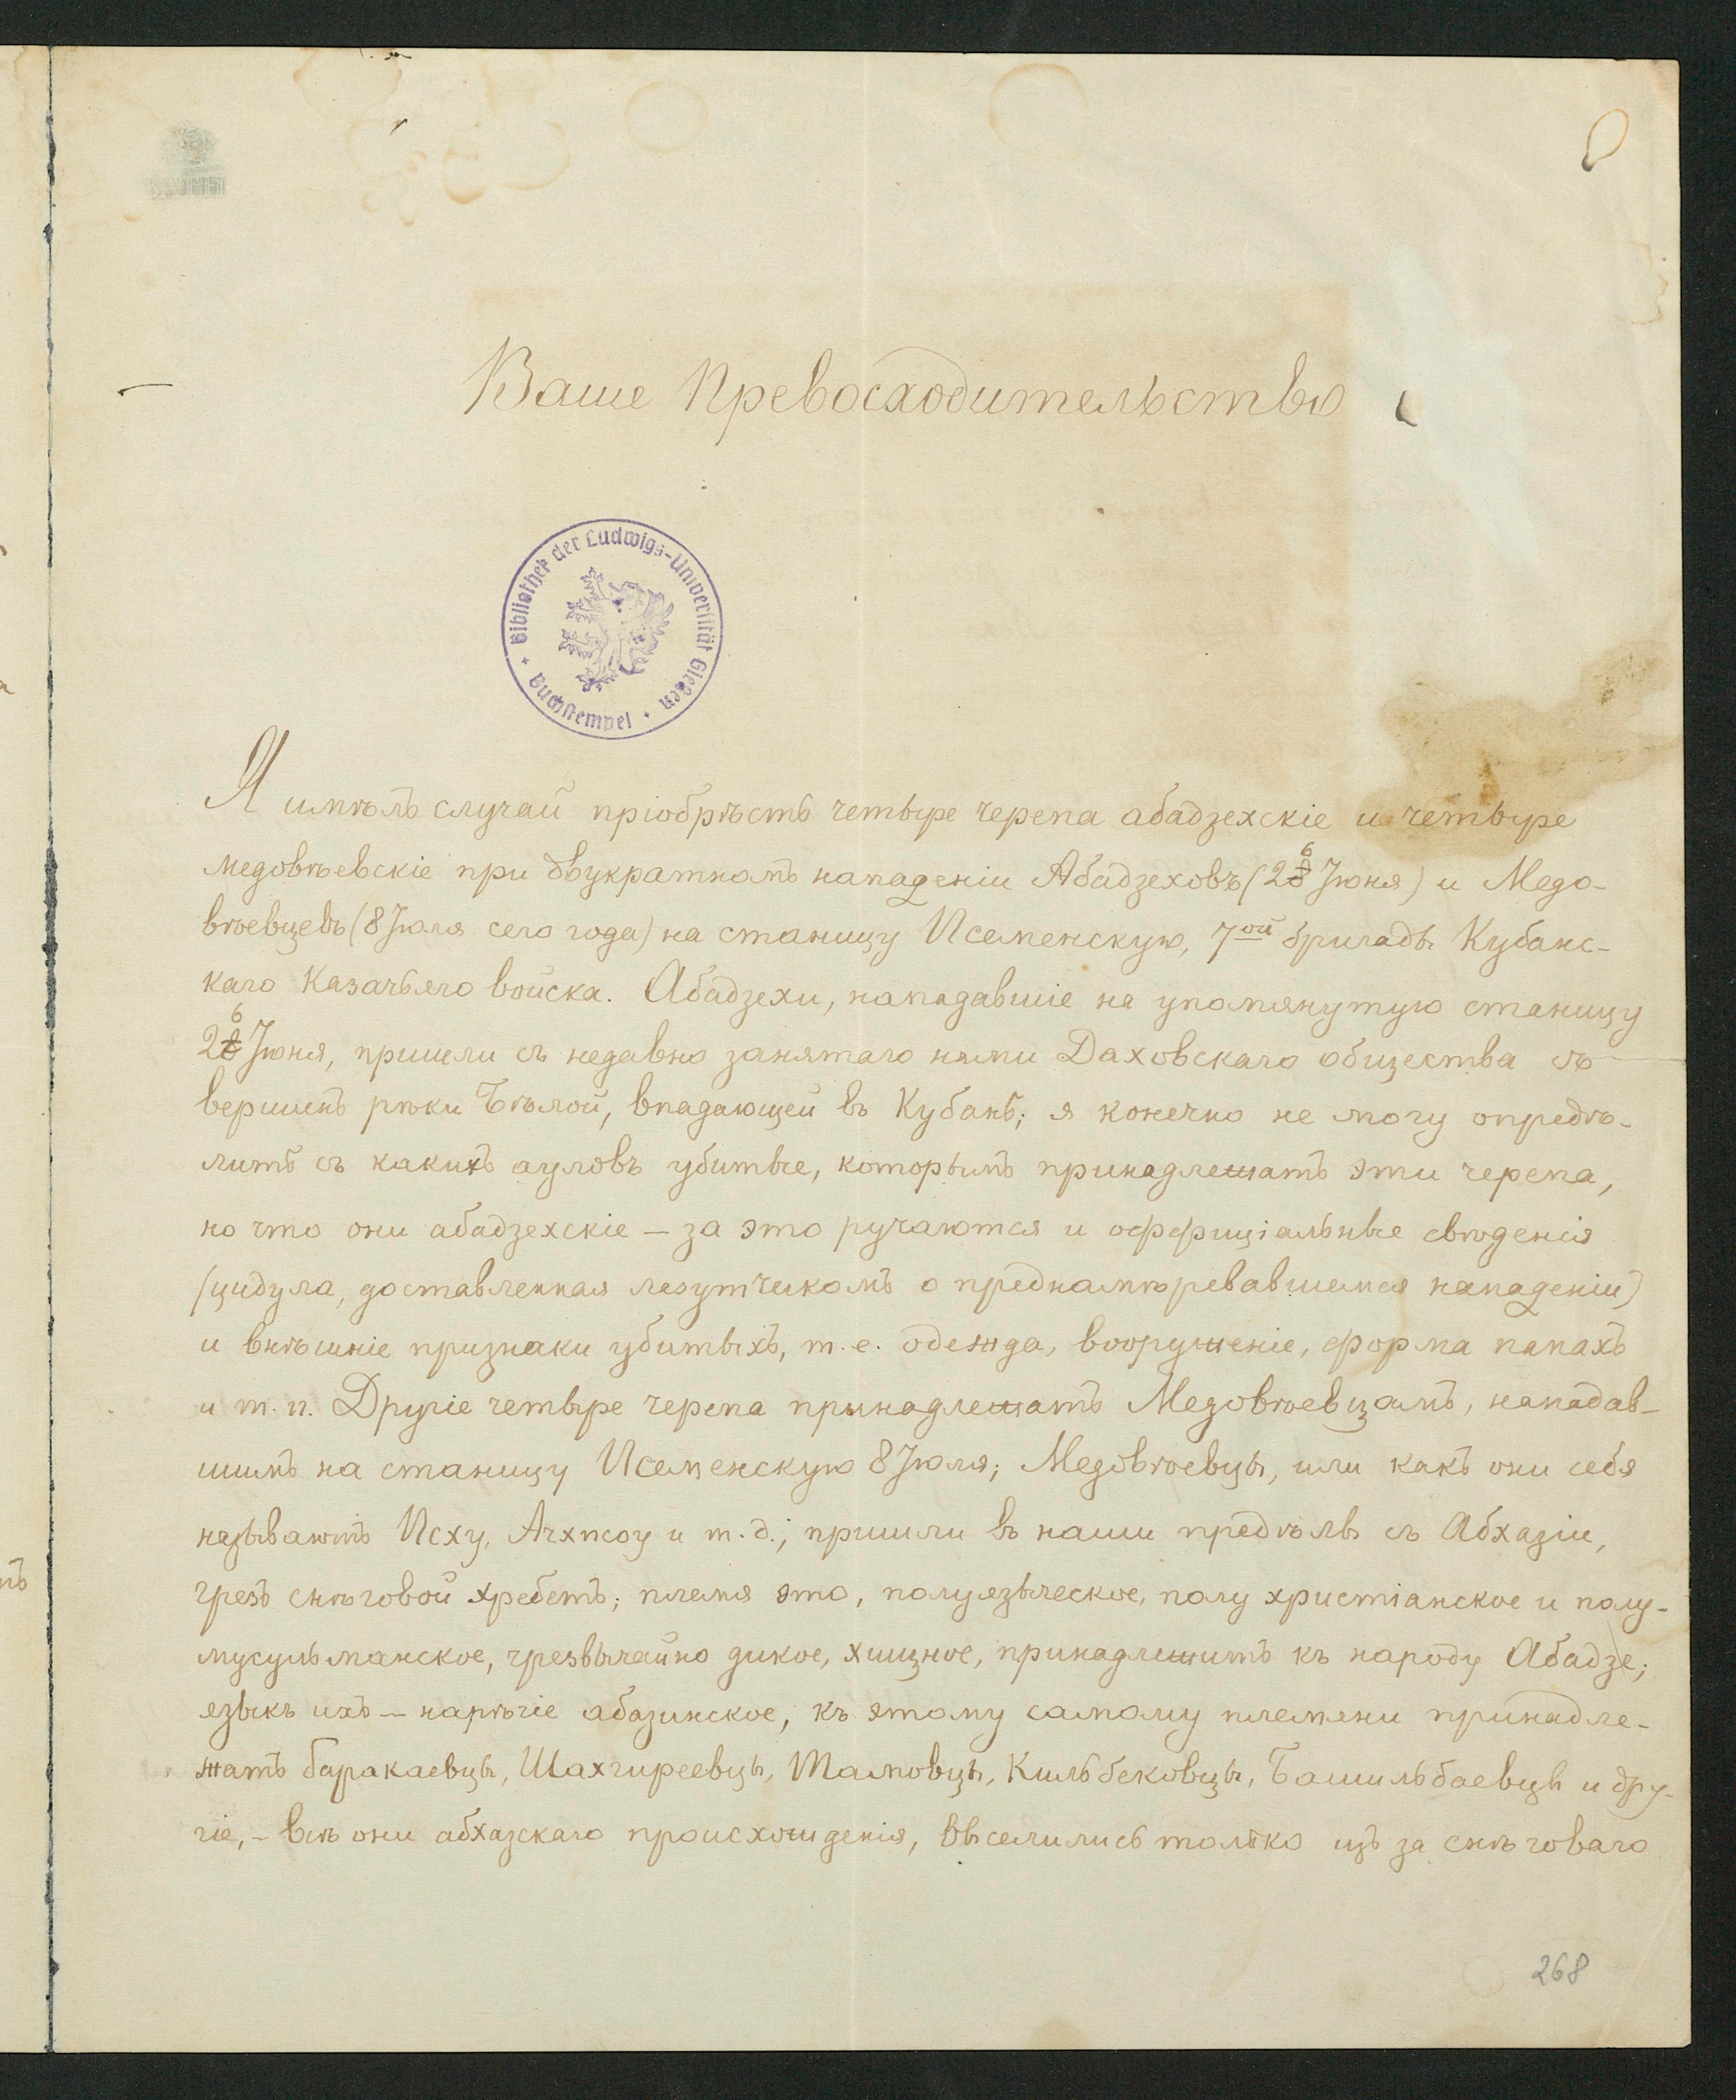 Ваше Превосходительство
Bibliothek der Ludwigs-Universität Gießen
Buchstempel
Я имѣлъ случай пріобрѣсть четыре черепа абадзехскіе и четыре
медовѣевскіе при двукратномъ нападеніи Абадзеховъ (26 Іюня) и Медо-
вѣевцевъ (8 Іюля сего года) на станицу Псеменскую, 7ой бригады Кубанс-
каго Казачьяго войска. Абадзехи, нападавшіе на упомянутую станицу
26 Іюня, пришли съ недавно занятаго нами Даховскаго общества съ
вершинъ рѣки Бѣлой, впадающей въ Кубань; я конечно не могу опредѣ-
лить съ какихъ ауловъ убитые, которымъ принадлежатъ эти черепа,
но что они абадзехскіе — за это ручаются и оффиціальные свѣденія
(цидула, доставленная лазутчикомъ о преднамѣревавшемся нападеніи)
и внѣшніе признаки убитыхъ, т. е. одежда, вооруженіе, форма папахъ
и т. п. Другіе четыре черепа принадлежатъ Медовѣевцамъ, нападав-
шимъ на станицу Псеменскую 8 Іюля; Медовѣевцы, или какъ они себя
называютъ Псху, Ахчпсоу и т. д.; пришли въ наши предѣлы съ Абхазіи,
чрезъ снѣговой хребетъ; племя это, полуязыческое, полу христіанское и полу-
мусульманское, чрезвычайно дикое, хищное, принадлежитъ къ народу Абадзе;
языкъ ихъ — нарѣчіе абазинское, къ этому самому племени принадле-
жатъ баракаевцы, Шахгиреевцы, Тамовцы, Кильбековцы, Башильбаевцы и дру-
гіе, - всѣ они абхазскаго происхожденія, выселились только изъ за снѣговаго
268